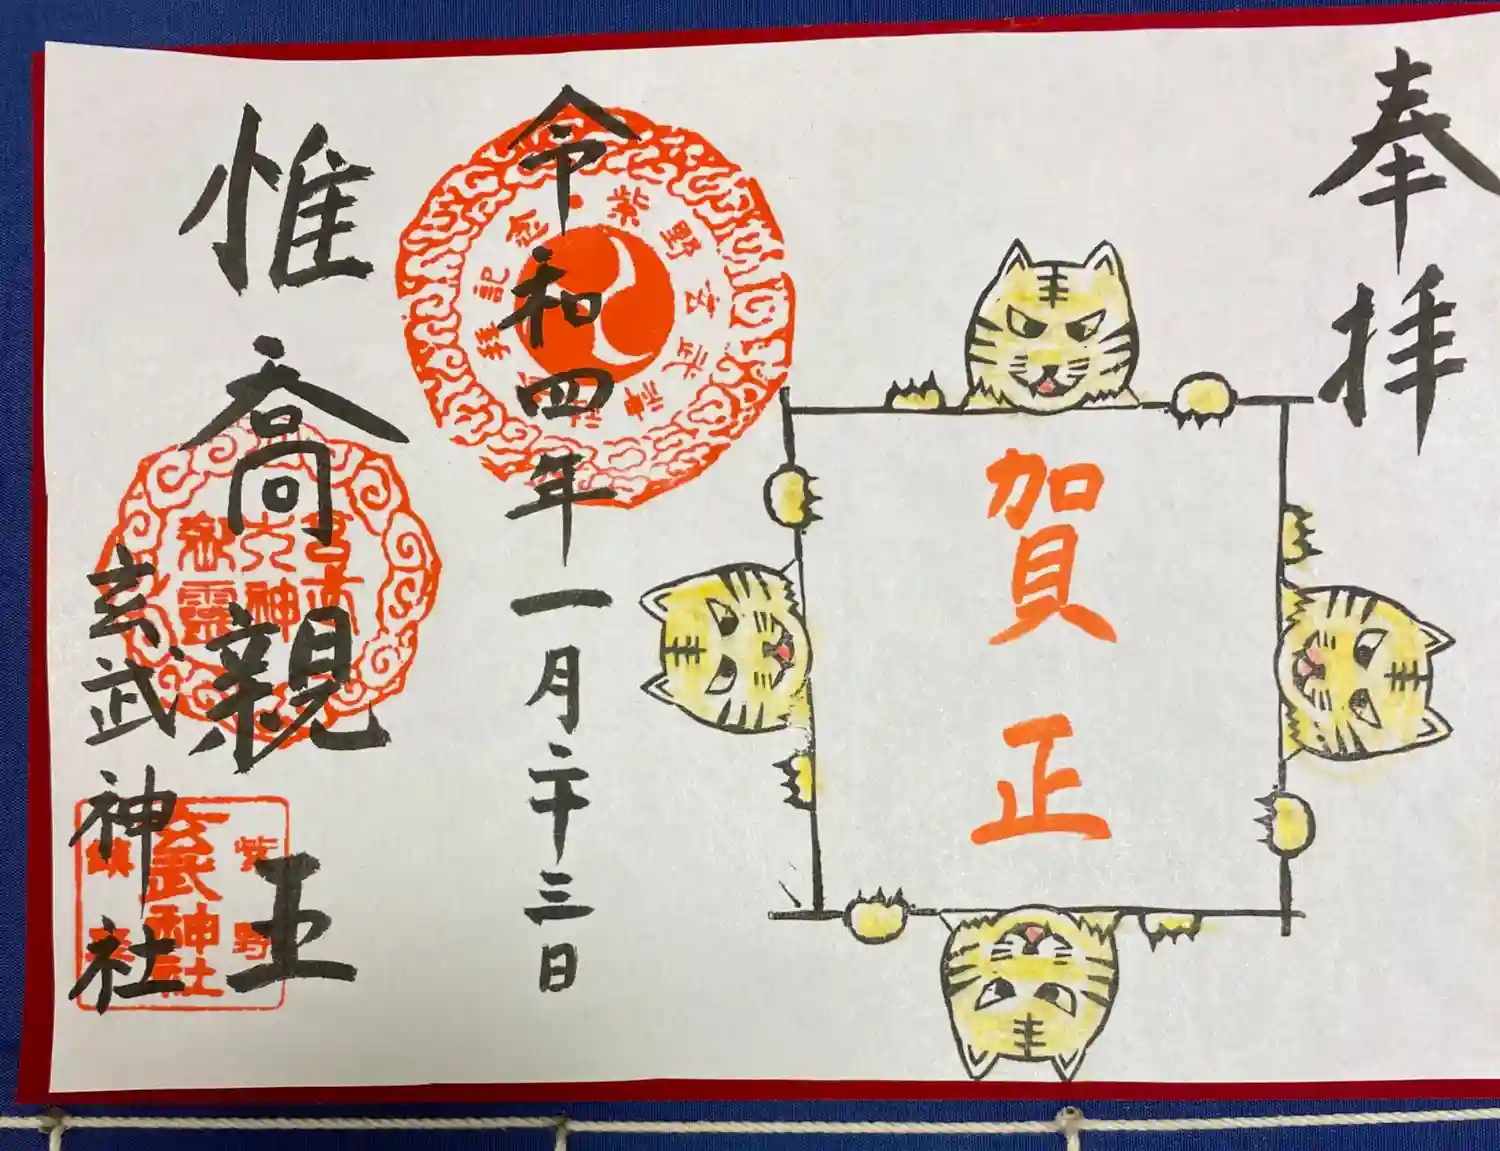 奉拝
賀正
令和四年一月二十三日
紫野玄武神社参拝記念
惟喬親王
玄武神社
紫野
玄武神社